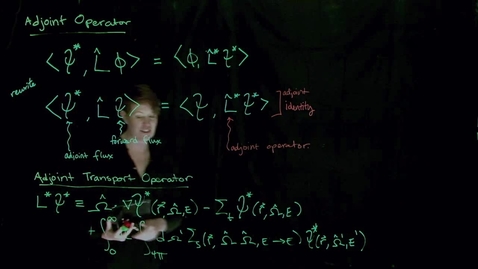 Adjoint Operator
< Ψ*, L̂ φ > = < φ, L̂* Ψ* >
rewrite
< Ψ*, L̂ Ψ > = < Ψ, L̂* Ψ* > adjoint identity
adjoint flux forward flux adjoint operator
Adjoint Transport Operator
L* Ψ* ≡ Ω̂·∇Ψ*(r, Ω̂, E) − Σt Ψ*(r, Ω̂, E)
+ ∫₀^∞ ∫4π dΩ' Σs(r, Ω̂ Ω̂, E → E) Ψ*(r, Ω̂', E')